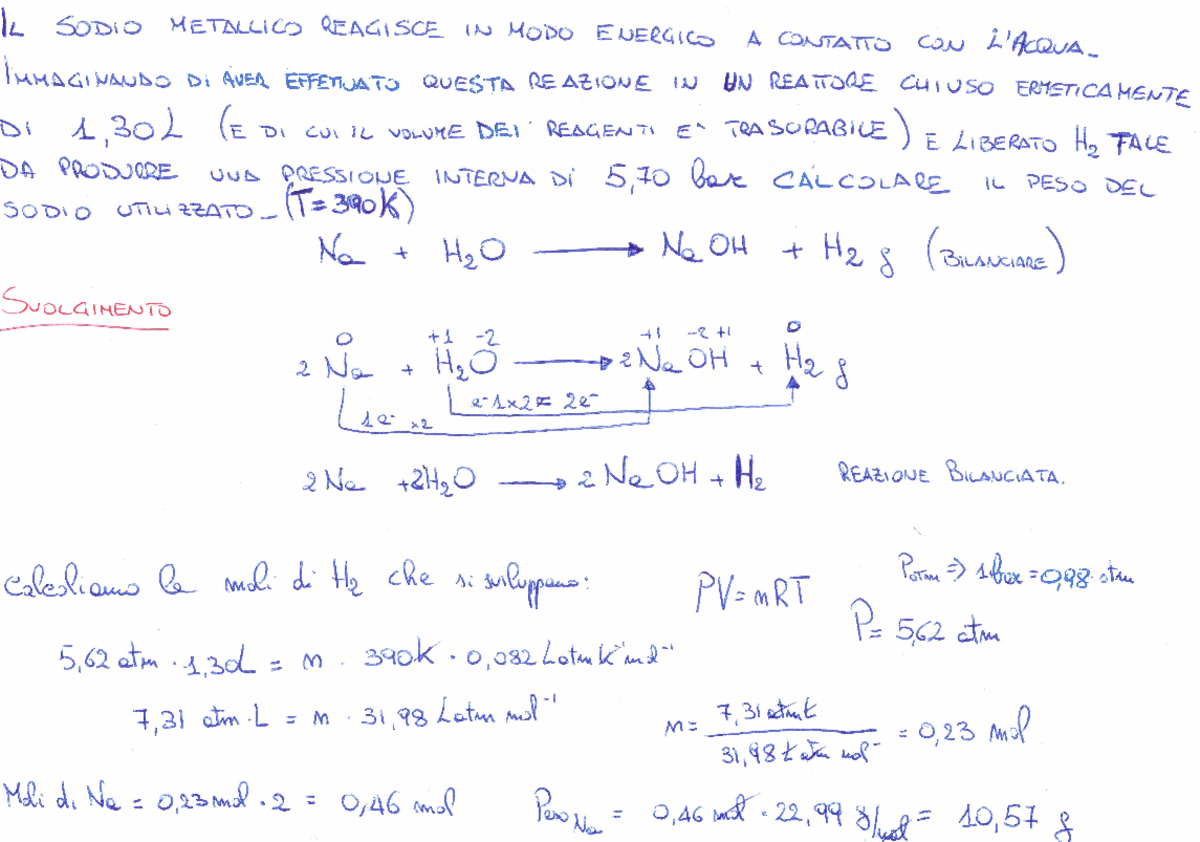 IL SODIO METALLICO REAGISCE IN MODO ENERGICO A CONTATTO CON L'ACQUA_
IMMAGINANDO DI AVER EFFETTUATO QUESTA REAZIONE IN UN REATTORE CHIUSO ERMETICAMENTE
DI 1,30L (E DI CUI IL VOLUME DEI REAGENTI E' TRASCURABILE) E LIBERATO H2 TALE
DA PRODURRE UNA PRESSIONE INTERNA DI 5,70 bar CALCOLARE IL PESO DEL
SODIO UTILIZZATO_ (T=390K)
Na + H2O → NaOH + H2 g (BILANCIARE)
SVOLGIMENTO
0 +1 -2 +1 -2 +1 0
2 Na + H2O → 2NaOH + H2 g
e- 1x2 = 2e-
1e- x2
2Na +2H2O → 2 NaOH + H2 REAZIONE BILANCIATA.
Calcoliamo le moli di H2 che si sviluppano: PV=nRT Patm => 1bar=0,98 atm
P= 5,62 atm
5,62 atm · 1,30L = n · 390K · 0,082 L atm K⁻¹ mol⁻¹
7,31 atm·L = n · 31,98 L atm mol⁻¹ n= 7,31 atm L / 31,98 L atm mol⁻ = 0,23 mol
Moli di Na = 0,23mol · 2 = 0,46 mol Peso Na = 0,46 mol · 22,99 g/mol = 10,57 g